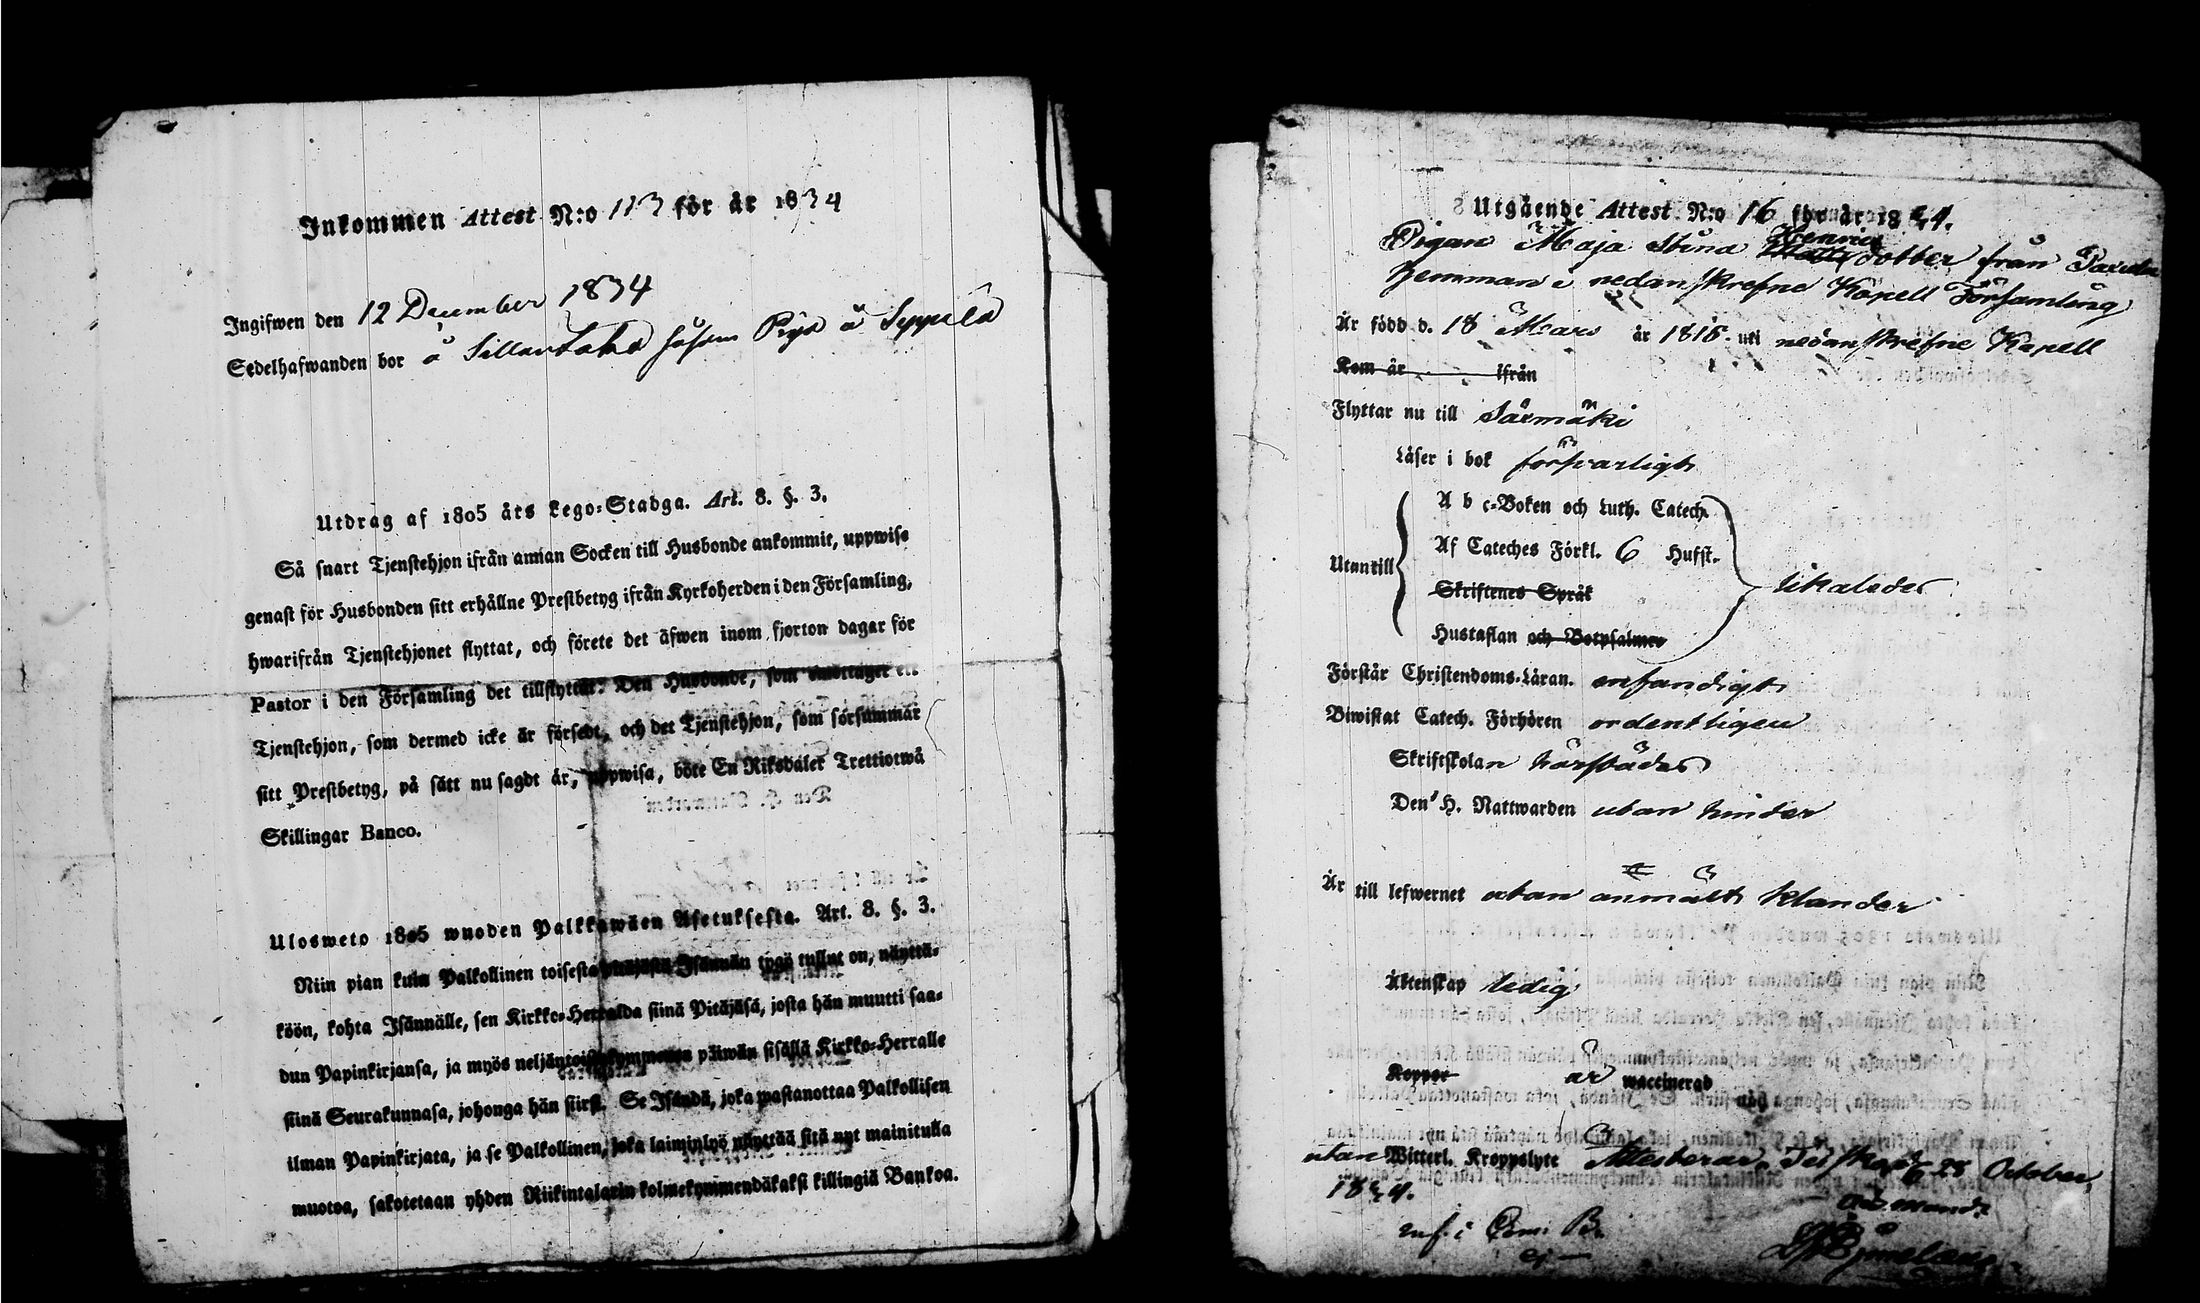 Inkommen Attest N:o 113 för år 1834
Ingifwen den 12 December 1834
Sedelhafwanden bor å Sillantaka såsom Piga å Seppilä
Utdrag af 1805 års Lego-Stadga. Art. 8. §. 3.
Så snart Tjenstehjon ifrån annan Socken till Husbonde ankommit, uppwise
genast för Husbonden sitt erhållne Prestbetyg ifrån Kyrkoherden i den Församling,
hwarifrån Tjenstehjonet flyttat, och förete det äfwen inom fjorton dagar för
Pastor i den Församling det tillflyttat. Den Husbonde, som emottager ett
Tjenstehjon, som dermed icke är försedt, och det Tjenstehjon, som försummar
sitt Prestbetyg, på sätt nu sagdt är, uppwisa, böte En Riksdaler Trettiotwå
Skillingar Banco.
Ulosweto 1805 wuoden Palkkawäen Asetuksesta. Art. 8. §. 3.
Niin pian kuin Palkollinen toisesta pitäjästä Isännän tygö tullut on, näyttä-
köön, kohta Isännälle, sen Kirkko-Herralda siinä Pitäjäsä, josta hän muutti saa-
dun Papinkirjansa, ja myös neljäntoistakymmenen päiwän sisällä Kirkko-Herralle
siinä Seurakunnasa, johonga hän siirsi. Se Isändä, joka wastanottaa Palkollisen
ilman Papinkirjata, ja se Palkollinen, joka laiminlyö näyttää sitä nyt mainitulla
muotoa, sakotetaan yhden Riikintalarin kolmekymmendäkaksi killingiä Bankoa.
Utgående Attest N:o 16 för år 1834.
Pigan Maja Stina Henricsdotter från
hemman i nedanskrefne Kapell Församling
Är född d. 18 Mars år 1815. uti nedanskrefne Kapell
Kom år ifrån
Flyttar nu till Särmäki
Läser i bok försvarligt
A b c-Boken och Luth. Catech.
Utantill Af Cateches Förkl. 6 Hufst. likaledes
Skriftenes Språk
Hustaflan och Botpsalmer
Förstår Christendoms-Läran. enfandigt
Biwistat Catech. Förhören ordentligen
Skriftskolan härstädes
Den H. Nattwarden utan hinder
Är till lefwernet utan anmält klander
Äktenskap ledig
Koppor är waccinerad
utan Witterl. Kroppslyte Attesterar, Teisko d. 28 October,
1834.